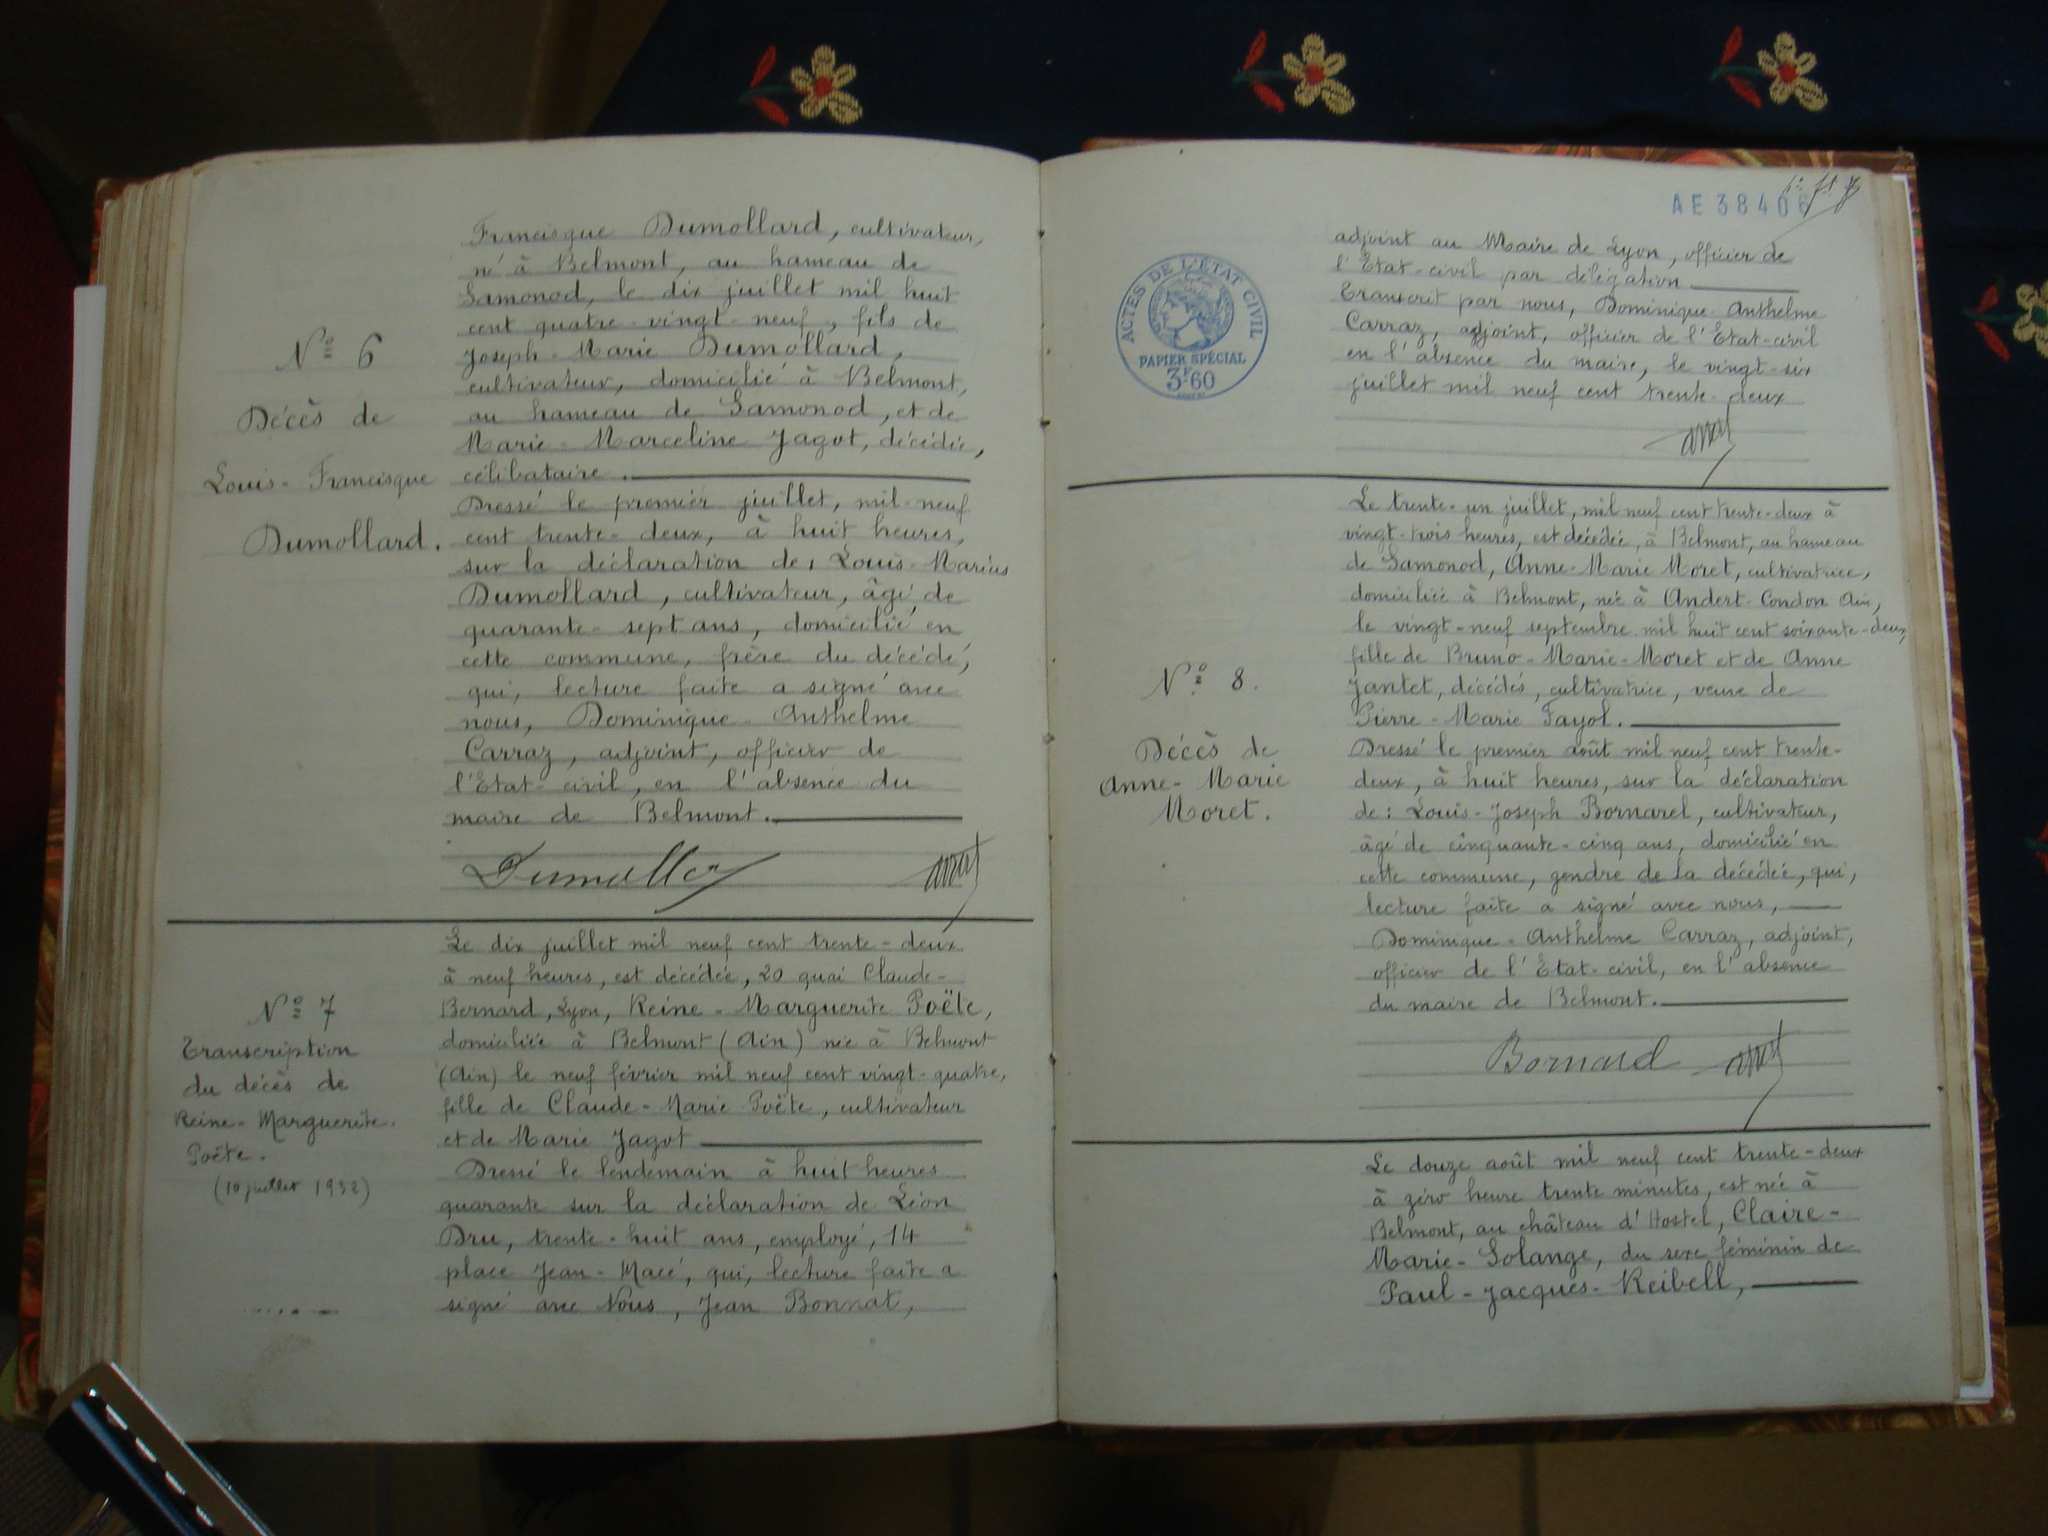 Francisque Dumollard, cultivateur,
né à Belmont, au hameau de
Samonod, le dix juillet mil huit
cent quatre-vingt-neuf, fils de
Joseph-Marie Dumollard,
cultivateur, domicilié à Belmont,
au hameau de Samonod, et de
Marie-Marceline Jagot, décédée,
célibataire.
Dressé le premier juillet, mil-neuf
cent trente-deux, à huit heures,
sur la déclaration de, Louis-Marius
Dumollard, cultivateur, âgé de
quarante-sept ans, domicilié en
cette commune, frère du décédé,
qui, lecture faite a signé avec
nous, Dominique-Anthelme
Carraz, adjoint, officier de
l'Etat-civil, en l'absence du
maire de Belmont.
N° 6
Décès de
Louis-Francisque
Dumollard.
Le dix juillet mil neuf cent trente-deux
à neuf heures, est décédée, 20 quai Claude-
Bernard, Lyon, Reine-Marguerite Poëte,
domiciliée à Belmont (Ain) née à Belmont
(Ain) le neuf février mil neuf cent vingt-quatre,
fille de Claude-Marie Poëte, cultivateur
et de Marie Jagot
Dressé le lendemain à huit heures
quarante sur la déclaration de Léon
Dru, trente-huit ans, employé, 14
place Jean-Macé, qui, lecture faite a
signé avec Nous, Jean Bonnat,
N° 7
Transcription
du décès de
Reine-Marguerite.
Poëte.
(10 juillet 1932)
AE 38406
ACTES DE L'ÉTAT CIVIL
PAPIER SPÉCIAL
3F60
adjoint au Maire de Lyon, officier de
l'Etat-civil par délégation
Transcrit par nous, Dominique-Anthelme
Carraz, adjoint, officier de l'Etat-civil
en l'absence du maire, le vingt-six
juillet mil neuf cent trente-deux
Le trente-un juillet, mil neuf cent trente-deux à
vingt-trois heures, est décédée, à Belmont, au hameau
de Samonod, Anne-Marie Moret, cultivatrice,
domiciliée à Belmont, née à Andert-Condon Ain,
le vingt-neuf septembre mil huit cent soixante-deux,
fille de Bruno-Marie-Moret et de Anne
Jantet, décédés, cultivatrice, veuve de
Pierre-Marie Fayol.
Dressé le premier août mil neuf cent trente-
deux, à huit heures, sur la déclaration
de: Louis-Joseph Bornarel, cultivateur,
âgé de cinquante-cinq ans, domicilié en
cette commune, gendre de la décédée, qui,
lecture faite a signé avec nous,
Dominique-Anthelme Carraz, adjoint,
officier de l'Etat-civil, en l'absence
du maire de Belmont.
N° 8.
Décès de
Anne-Marie
Moret.
Le douze août mil neuf cent trente-deux
à zéro heure trente minutes, est née à
Belmont, au château d'Hostel, Claire-
Marie-Solange, du sexe féminin de
Paul-Jacques-Reibell,